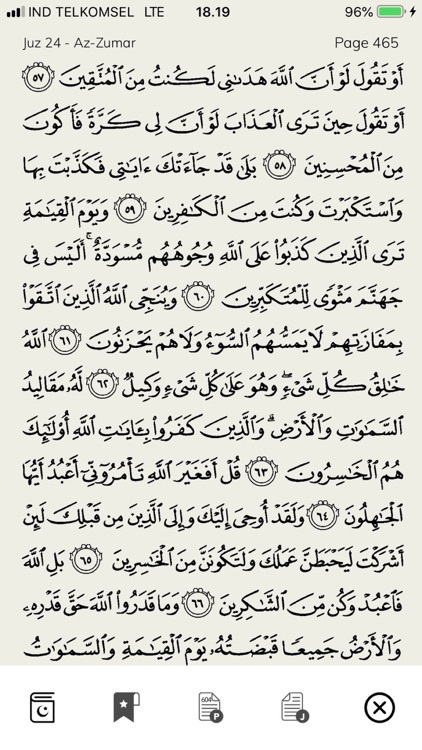 IND TELKOMSEL LTE 18.19 96%
Juz 24 - Az-Zumar Page 465
أَوْ تَقُولَ لَوْ أَنَّ ٱللَّهَ هَدَىٰنِى لَكُنتُ مِنَ ٱلْمُتَّقِينَ ٥٧
أَوْ تَقُولَ حِينَ تَرَى ٱلْعَذَابَ لَوْ أَنَّ لِى كَرَّةً فَأَكُونَ
مِنَ ٱلْمُحْسِنِينَ ٥٨ بَلَىٰ قَدْ جَآءَتْكَ ءَايَٰتِى فَكَذَّبْتَ بِهَا
وَٱسْتَكْبَرْتَ وَكُنتَ مِنَ ٱلْكَٰفِرِينَ ٥٩ وَيَوْمَ ٱلْقِيَٰمَةِ
تَرَى ٱلَّذِينَ كَذَبُوا۟ عَلَى ٱللَّهِ وُجُوهُهُم مُّسْوَدَّةٌ ۚ أَلَيْسَ فِى
جَهَنَّمَ مَثْوًى لِّلْمُتَكَبِّرِينَ ٦٠ وَيُنَجِّى ٱللَّهُ ٱلَّذِينَ ٱتَّقَوْا۟
بِمَفَازَتِهِمْ لَا يَمَسُّهُمُ ٱلسُّوٓءُ وَلَا هُمْ يَحْزَنُونَ ٦١ ٱللَّهُ
خَٰلِقُ كُلِّ شَىْءٍ ۖ وَهُوَ عَلَىٰ كُلِّ شَىْءٍ وَكِيلٌ ٦٢ لَّهُۥ مَقَالِيدُ
ٱلسَّمَٰوَٰتِ وَٱلْأَرْضِ ۗ وَٱلَّذِينَ كَفَرُوا۟ بِـَٔايَٰتِ ٱللَّهِ أُو۟لَٰٓئِكَ
هُمُ ٱلْخَٰسِرُونَ ٦٣ قُلْ أَفَغَيْرَ ٱللَّهِ تَأْمُرُوٓنِّىٓ أَعْبُدُ أَيُّهَا
ٱلْجَٰهِلُونَ ٦٤ وَلَقَدْ أُوحِىَ إِلَيْكَ وَإِلَى ٱلَّذِينَ مِن قَبْلِكَ لَئِنْ
أَشْرَكْتَ لَيَحْبَطَنَّ عَمَلُكَ وَلَتَكُونَنَّ مِنَ ٱلْخَٰسِرِينَ ٦٥ بَلِ ٱللَّهَ
فَٱعْبُدْ وَكُن مِّنَ ٱلشَّٰكِرِينَ ٦٦ وَمَا قَدَرُوا۟ ٱللَّهَ حَقَّ قَدْرِهِۦ
وَٱلْأَرْضُ جَمِيعًا قَبْضَتُهُۥ يَوْمَ ٱلْقِيَٰمَةِ وَٱلسَّمَٰوَٰتُ
604 P J